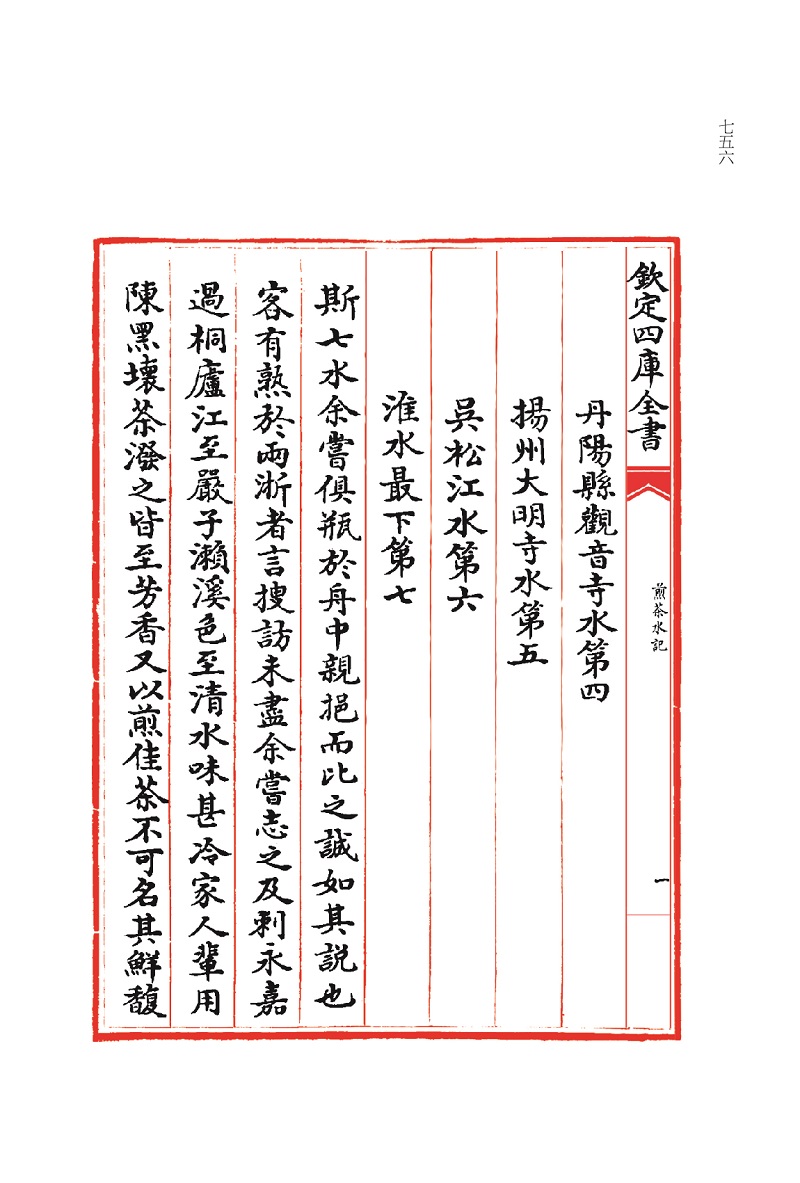 七五六
欽定四庫全書
煎茶水記
一
丹陽縣觀音寺水第四
揚州大明寺水第五
吳松江水第六
淮水最下第七
斯七水余嘗俱瓶於舟中親挹而比之誠如其説也
客有熟於兩浙者言搜訪未盡余嘗志之及刺永嘉
過桐廬江至嚴子瀨溪色至清水味甚冷家人輩用
陳黑壞茶潑之皆至芳香又以煎佳茶不可名其鮮馥